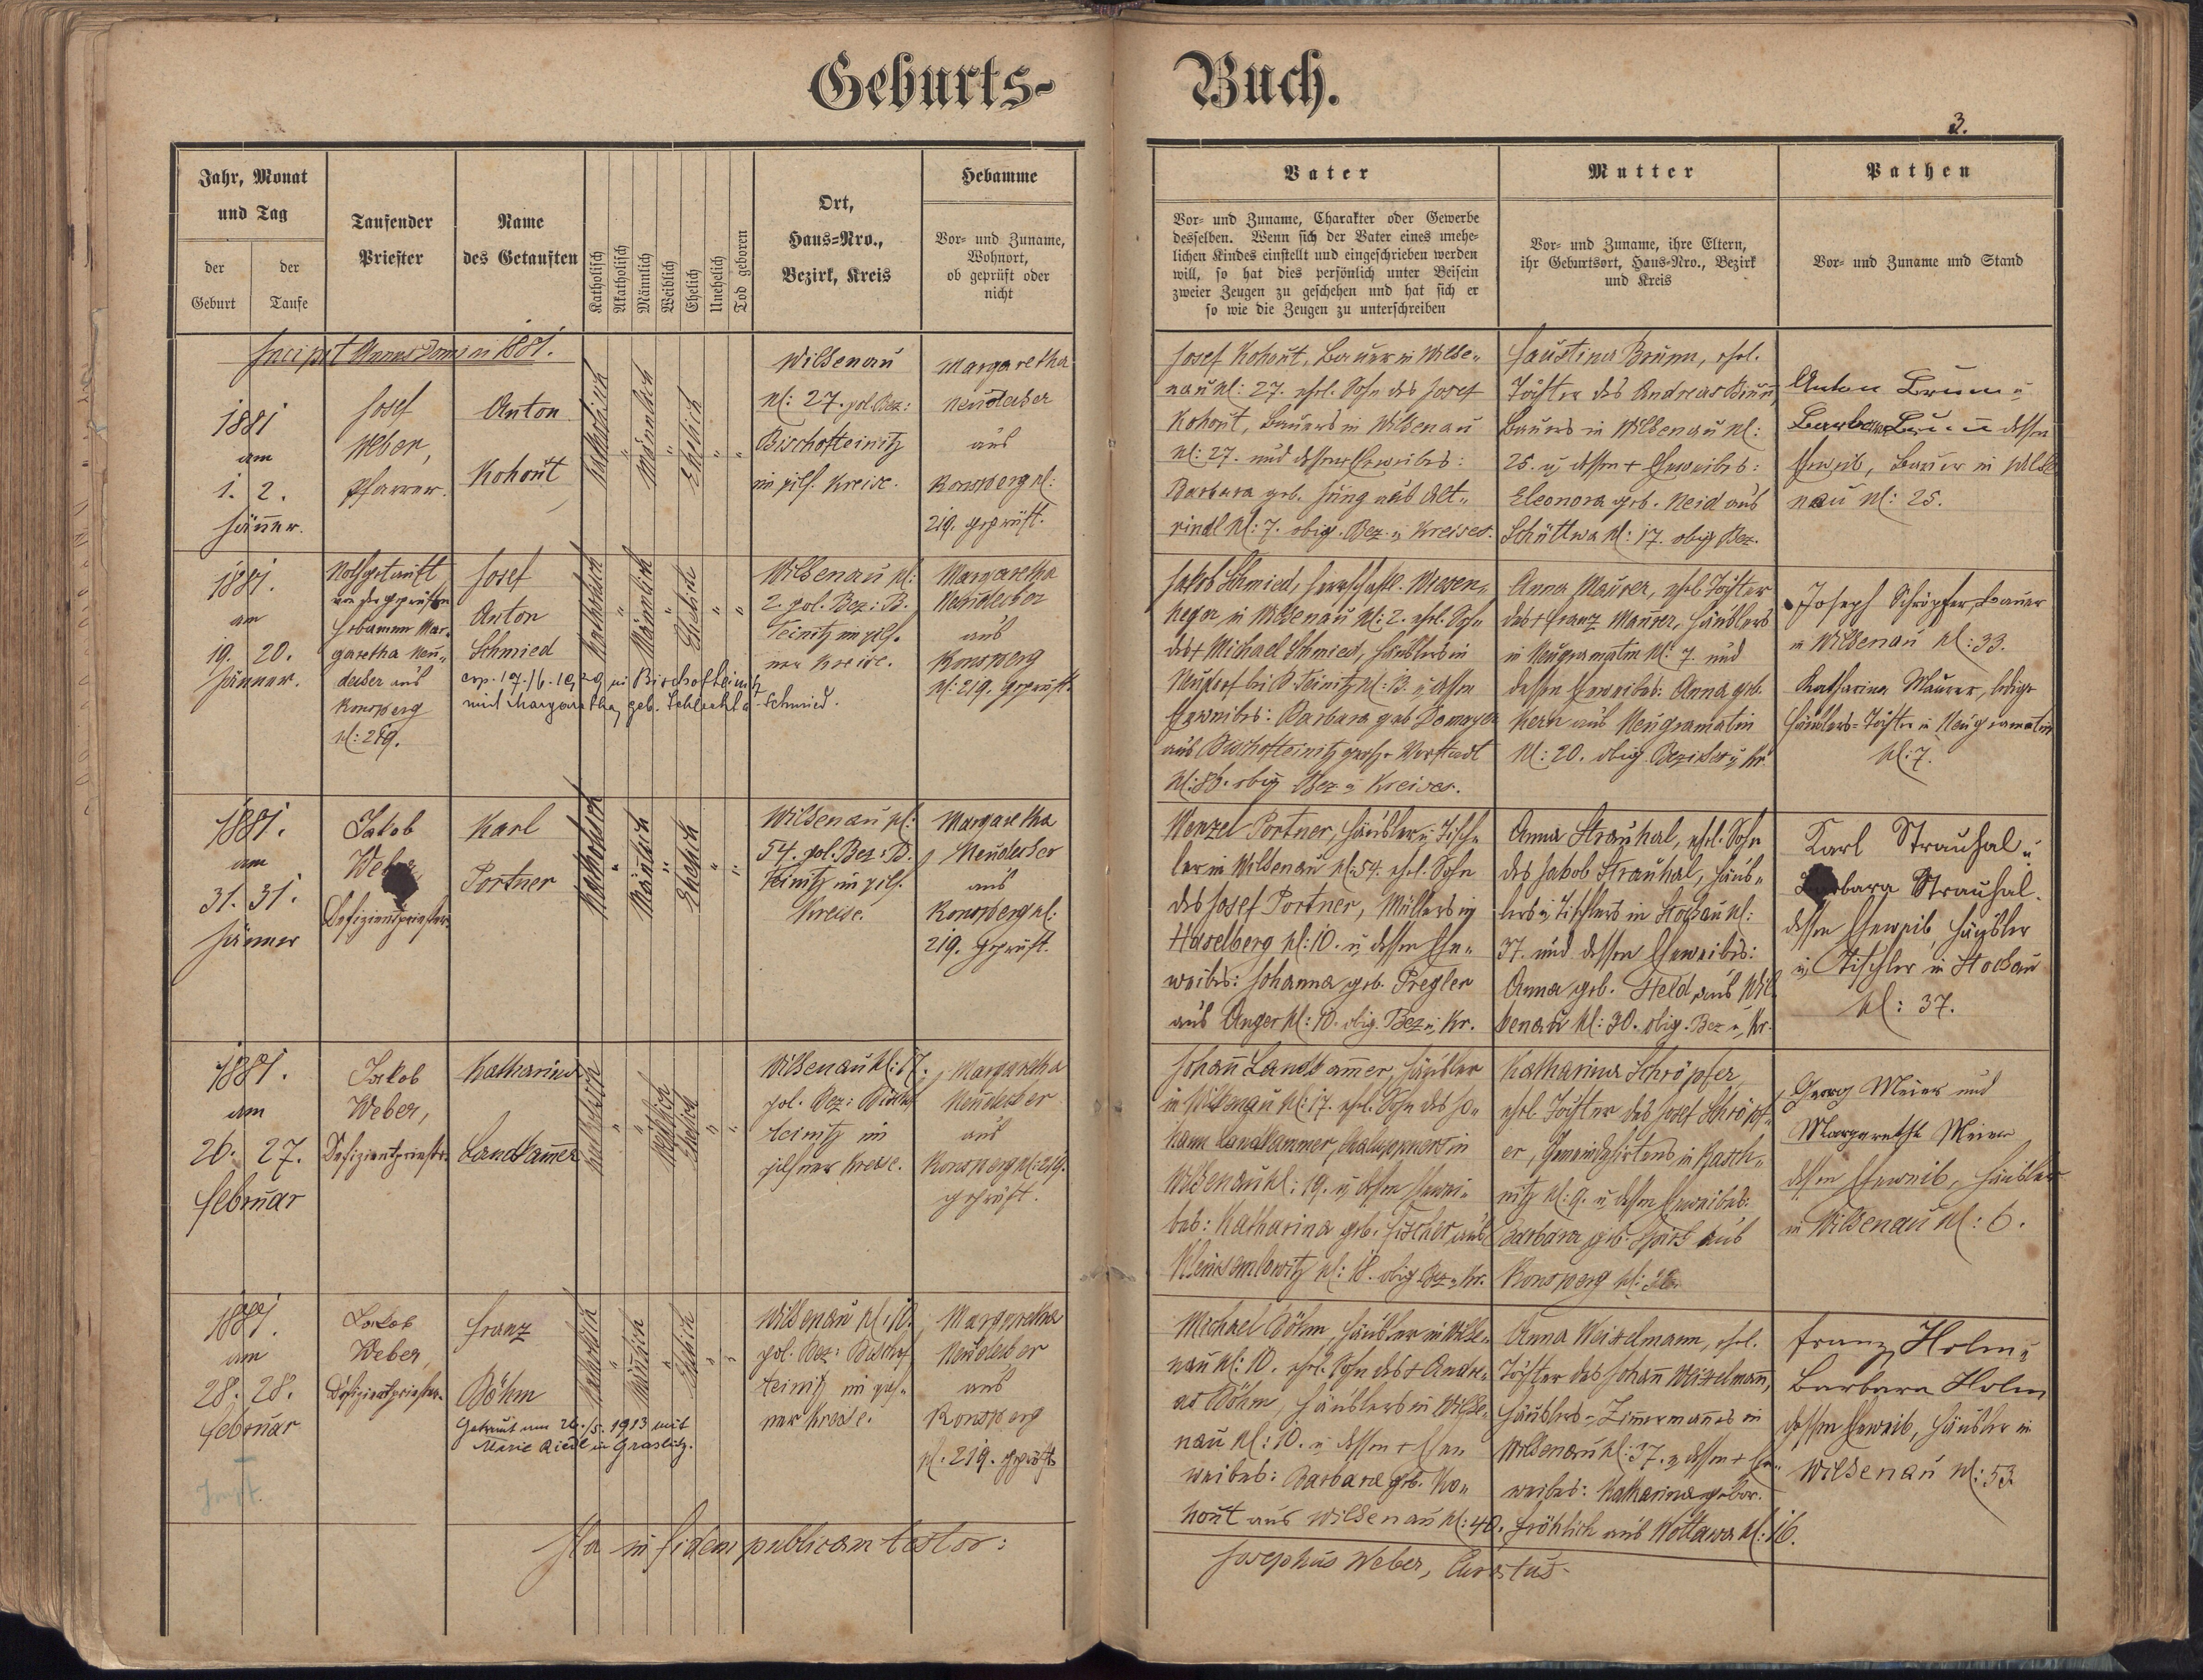 Geburts- Buch.
3.
Jahr, Monat und Tag
der Geburt
der Taufe
Taufender Priester
Name des Getauften
Katholisch
Akatholisch
Männlich
Weiblich
Ehelich
Unehelich
Tod geboren
Ort, Haus-Nro., Bezirk, Kreis
Hebamme
Vor- und Zuname, Wohnort, ob geprüft oder nicht
Vater
Vor- und Zuname, Charakter oder Gewerbe
desselben. Wenn sich der Vater eines unehe-
lichen Kindes einstellt und eingeschrieben werden
will, so hat dies persönlich unter Beisein
zweier Zeugen zu geschehen und hat sich er
so wie die Zeugen zu unterschreiben
Mutter
Vor- und Zuname, ihre Eltern,
ihr Geburtsort, Haus-Nro., Bezirk
und Kreis
Pathen
Vor- und Zuname und Stand
Incipit Annus Domini 1881.
1881
am
1. 2.
Jänner.
Josef
Weber,
Pfarrer.
Anton
Kohout
Katholisch
Männlich
Ehelich
Wilkenau
N: 27. pol. Bez:
Bischofteinitz
im pils. Kreise.
Margaretha
Neudecker
aus
Ronsperg N:
219. geprüft.
Josef Kohout, Bauer in Wilke-
nau N: 27. ehel. Sohn des Josef
Kohout, Bauers in Wilkenau
N: 27. und dessen Eheweibes:
Barbara geb. Jung aus Alt-
rindl N: 7. obig. Bez. u Kreises.
Faustina Brunn, ehel.
Tochter des Andreas Brunn,
Bauers in Wilkenau N:
25. u dessen + Eheweibes:
Eleonora geb. Neid aus
Schüttwa N: 17. obig. Bez.
Anton Brunn u
Barbara Brunn dessen
Eheweib, Bauer in Wilke
nau N: 25.
1881.
am
19. 20.
Jänner.
Nothgetauft
von der geprüften
Hebamme Mar-
garetha Neu-
decker aus
Ronsperg
N: 219.
Josef
Anton
Schmied
cop. 17./6. 1920 in Bischofteinitz
mit Margaretha, geb. Schlechta - Schmied.
Katholisch
Männlich
Ehelich
Wilkenau N:
2. pol. Bez: B.
Teinitz im pils-
ner Kreise.
Margaretha
Neudecker
aus
Ronsperg
N: 219. geprüft.
Jakob Schmied, herrschaftl. Wiesen-
heger in Wilkenau N: 2. ehel. Sohn
des + Michael Schmied, Häuslers in
Neudorf bei B. Teinitz N: 13. u dessen
Eheweibes: Barbara geb.
aus Bischofteinitz große Vorstadt
obig. Bez. u Kreises.
Anna Maurer, ehel. Tochter
des + Franz Maurer, Häuslers
in Neugramatin N: 7. und
dessen Eheweibes: Anna geb.
Kern aus Neugramatin
N: 20. obig. Bezirkes u Kr.
Joseph Schröpfer, Bauer
in Wilkenau N: 33.
Katharina Maurer, ledige
Häuslers-Tochter in Neugramatin
N: 7.
1881.
am
31. 31.
Jänner
Jakob
Weber
Defizientpriester.
Karl
Portner
Katholisch
Männlich
Ehelich
Wilkenau N:
54. pol. Bez: B.
Teinitz im pils.
Kreise.
Margaretha
Neudecker
aus
Ronsperg N:
219. geprüft.
Wenzel Portner, Häusler u Tisch-
ler in Wilkenau N: 54. ehel. Sohn
des Josef Portner, Müllers in
Haselberg N: 10. u dessen Ehe-
weibes: Johanna geb. Pregler
aus Anger N: 10. obig. Bez. u Kr.
Anna Strauhal, ehel. Sohn
des Jakob Strauhal, Häus-
lers u Tischlers in Stockau N:
37. und dessen Eheweibes:
Anna geb. Held aus Wil-
kenau N: 30. obig. Bez. u Kr.
Karl Strauhal u
Barbara Strauhal.
dessen Eheweib, Häusler
u Tischler in Stockau
N: 37.
1881.
am
26. 27.
Februar
Jakob
Weber,
Defizientpriester.
Katharina
Landkammer
Katholisch
Weiblich
Ehelich
Wilkenau N: 17.
pol. Bez: Bischof
teinitz im
pilsner Kreise.
Margaretha
Neudecker
aus
Ronsperg N: 219.
geprüft.
Johann Landkammer, Häusler
in Wilkenau N: 17. ehel. Sohn des Jo-
hann Landkammer, Chaluppners in
Wilkenau N: 19. u dessen Ehewei-
bes: Katharina geb. Fischer aus
Kleinsemlowitz N: 18. obig. Bez. u Kr.
Katharina Schröpfer,
ehel. Tochter des Josef Schröpf-
er, Gemeindehirtens in Rasch-
nitz N: 9. u dessen Eheweibes:
Barbara geb. aus
Ronsperg N:
Georg Meier und
Margaretha Meier
dessen Eheweib, Häusler
in Wilkenau N: 6.
1881.
am
28. 28.
Februar
Jakob
Weber,
Defizientpriester.
Franz
Böhm
Getraut am 26./5. 1913 mit
Marie Riedl in Graslitz.
Katholisch
Männlich
Ehelich
Wilkenau N: 10.
pol. Bez: Bischof
teinitz im pils-
ner Kreise.
Margaretha
Neudecker
aus
Ronsperg
N: 219. geprüft
Michael Böhm, Häusler in Wilke-
nau N: 10. ehel. Sohn des + Andre-
as Böhm, Häuslers in Wilke-
nau N: 10. u dessen + Ehe-
weibes: Barbara geb. Ko-
hout aus Wilkenau N: 40.
Anna Weiselmann, ehel.
Tochter des Johann Weiselmann,
Häuslers - Zimmermannes in
Wilkenau N: 37. u dessen + Ehe-
weibes: Katharina gebor.
Fröhlich aus Wottawa N: 16.
Franz Holm u
Barbara Holm
dessen Eheweib, Häusler in
Wilkenau N: 53.
Ita in fidem publicam testor:
Josephus Weber, Curatus